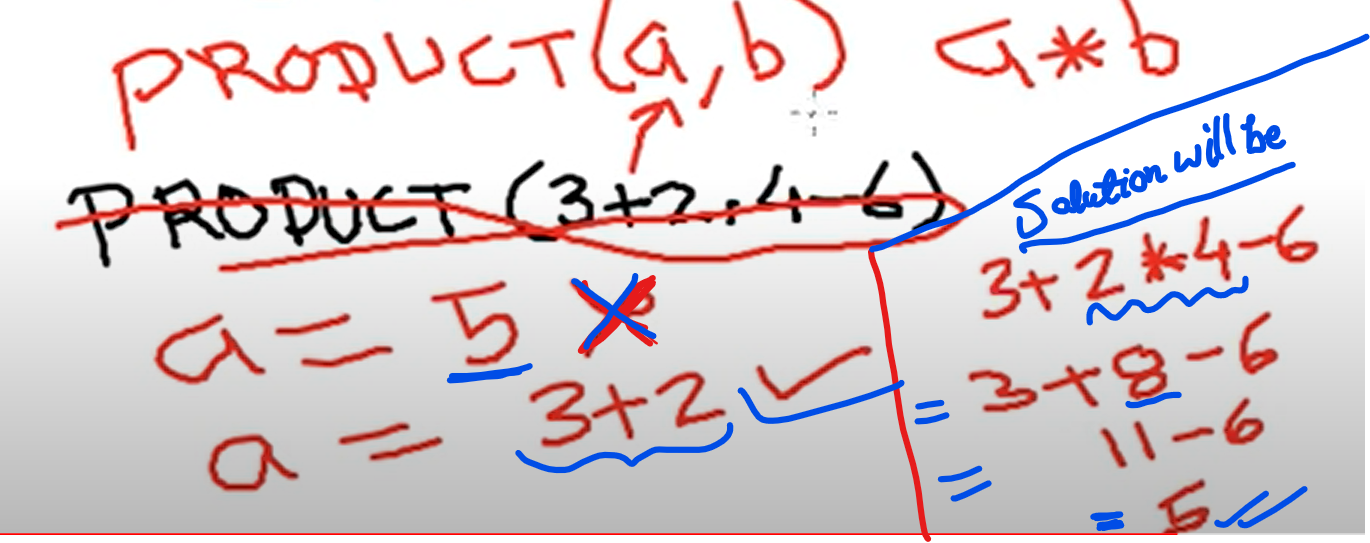 PRODUCT(a,b) a*b
PRODUCT (3+2,4-6)
a = 5
a = 3+2
Solution will be
3+2*4-6
= 3+8-6
= 11-6
= 5